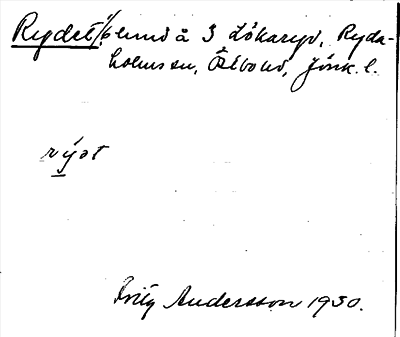 Rydet, lund å 3 Lökaryd, Ryda-
holms sn, Östbo hd, Jönk. l.
rýət
Fritz Andersson 1930.